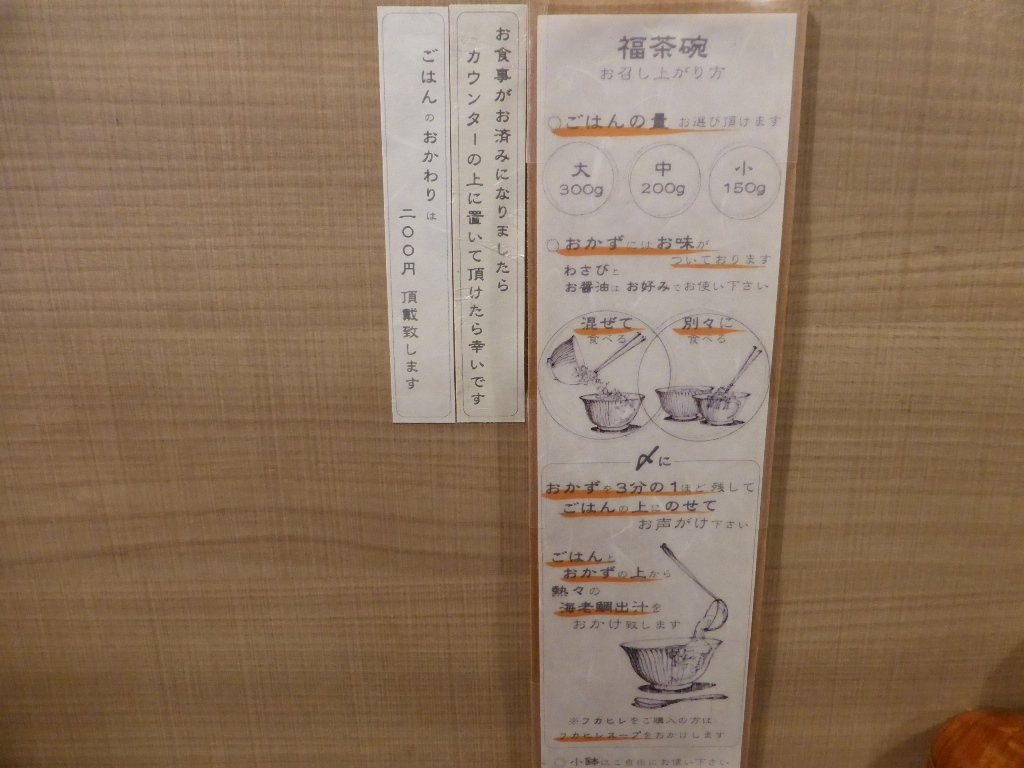 お食事がお済みになりましたら
カウンターの上に置いて頂けたら幸いです
ごはんのおかわりは
二〇〇円 頂戴致します
福茶碗
お召し上がり方
○ごはんの量 お選び頂けます
大
300g
中
200g
小
150g
○おかずにはお味が
ついております
わさびと
お醤油はお好みでお使い下さい
混ぜて
食べる
別々に
食べる
〆に
おかずを3分の1ほど残して
ごはんの上にのせて
お声がけ下さい
ごはんと
おかずの上から
熱々の
海老鯛出汁を
おかけ致します
※フカヒレをご購入の方は
フカヒレスープをおかけします
○小鉢はご自由にお使い下さい